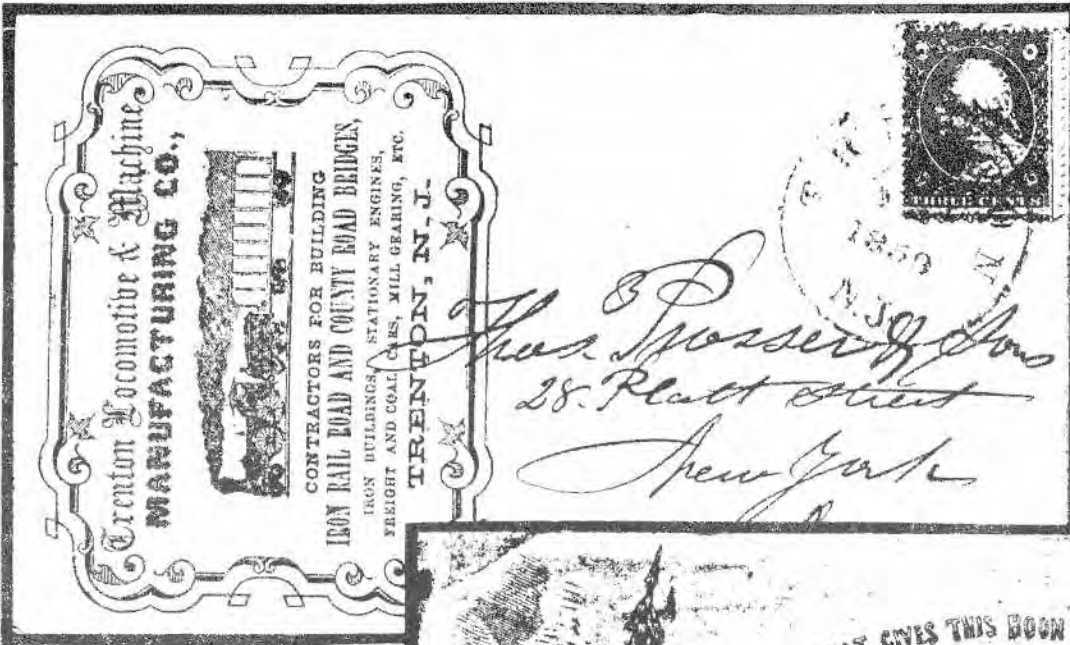 Trenton Locomotive & Machine
MANUFACTURING CO.,
CONTRACTORS FOR BUILDING
IRON RAIL ROAD AND COUNTY ROAD BRIDGES,
IRON BUILDINGS, STATIONARY ENGINES,
FREIGHT AND COAL CARS, MILL GEARING, ETC.
TRENTON, N.J.
THREE CENTS
1859
N.J.
Thos. Prosser & Sons
28. Platt Street
New York
GIVES THIS BOON